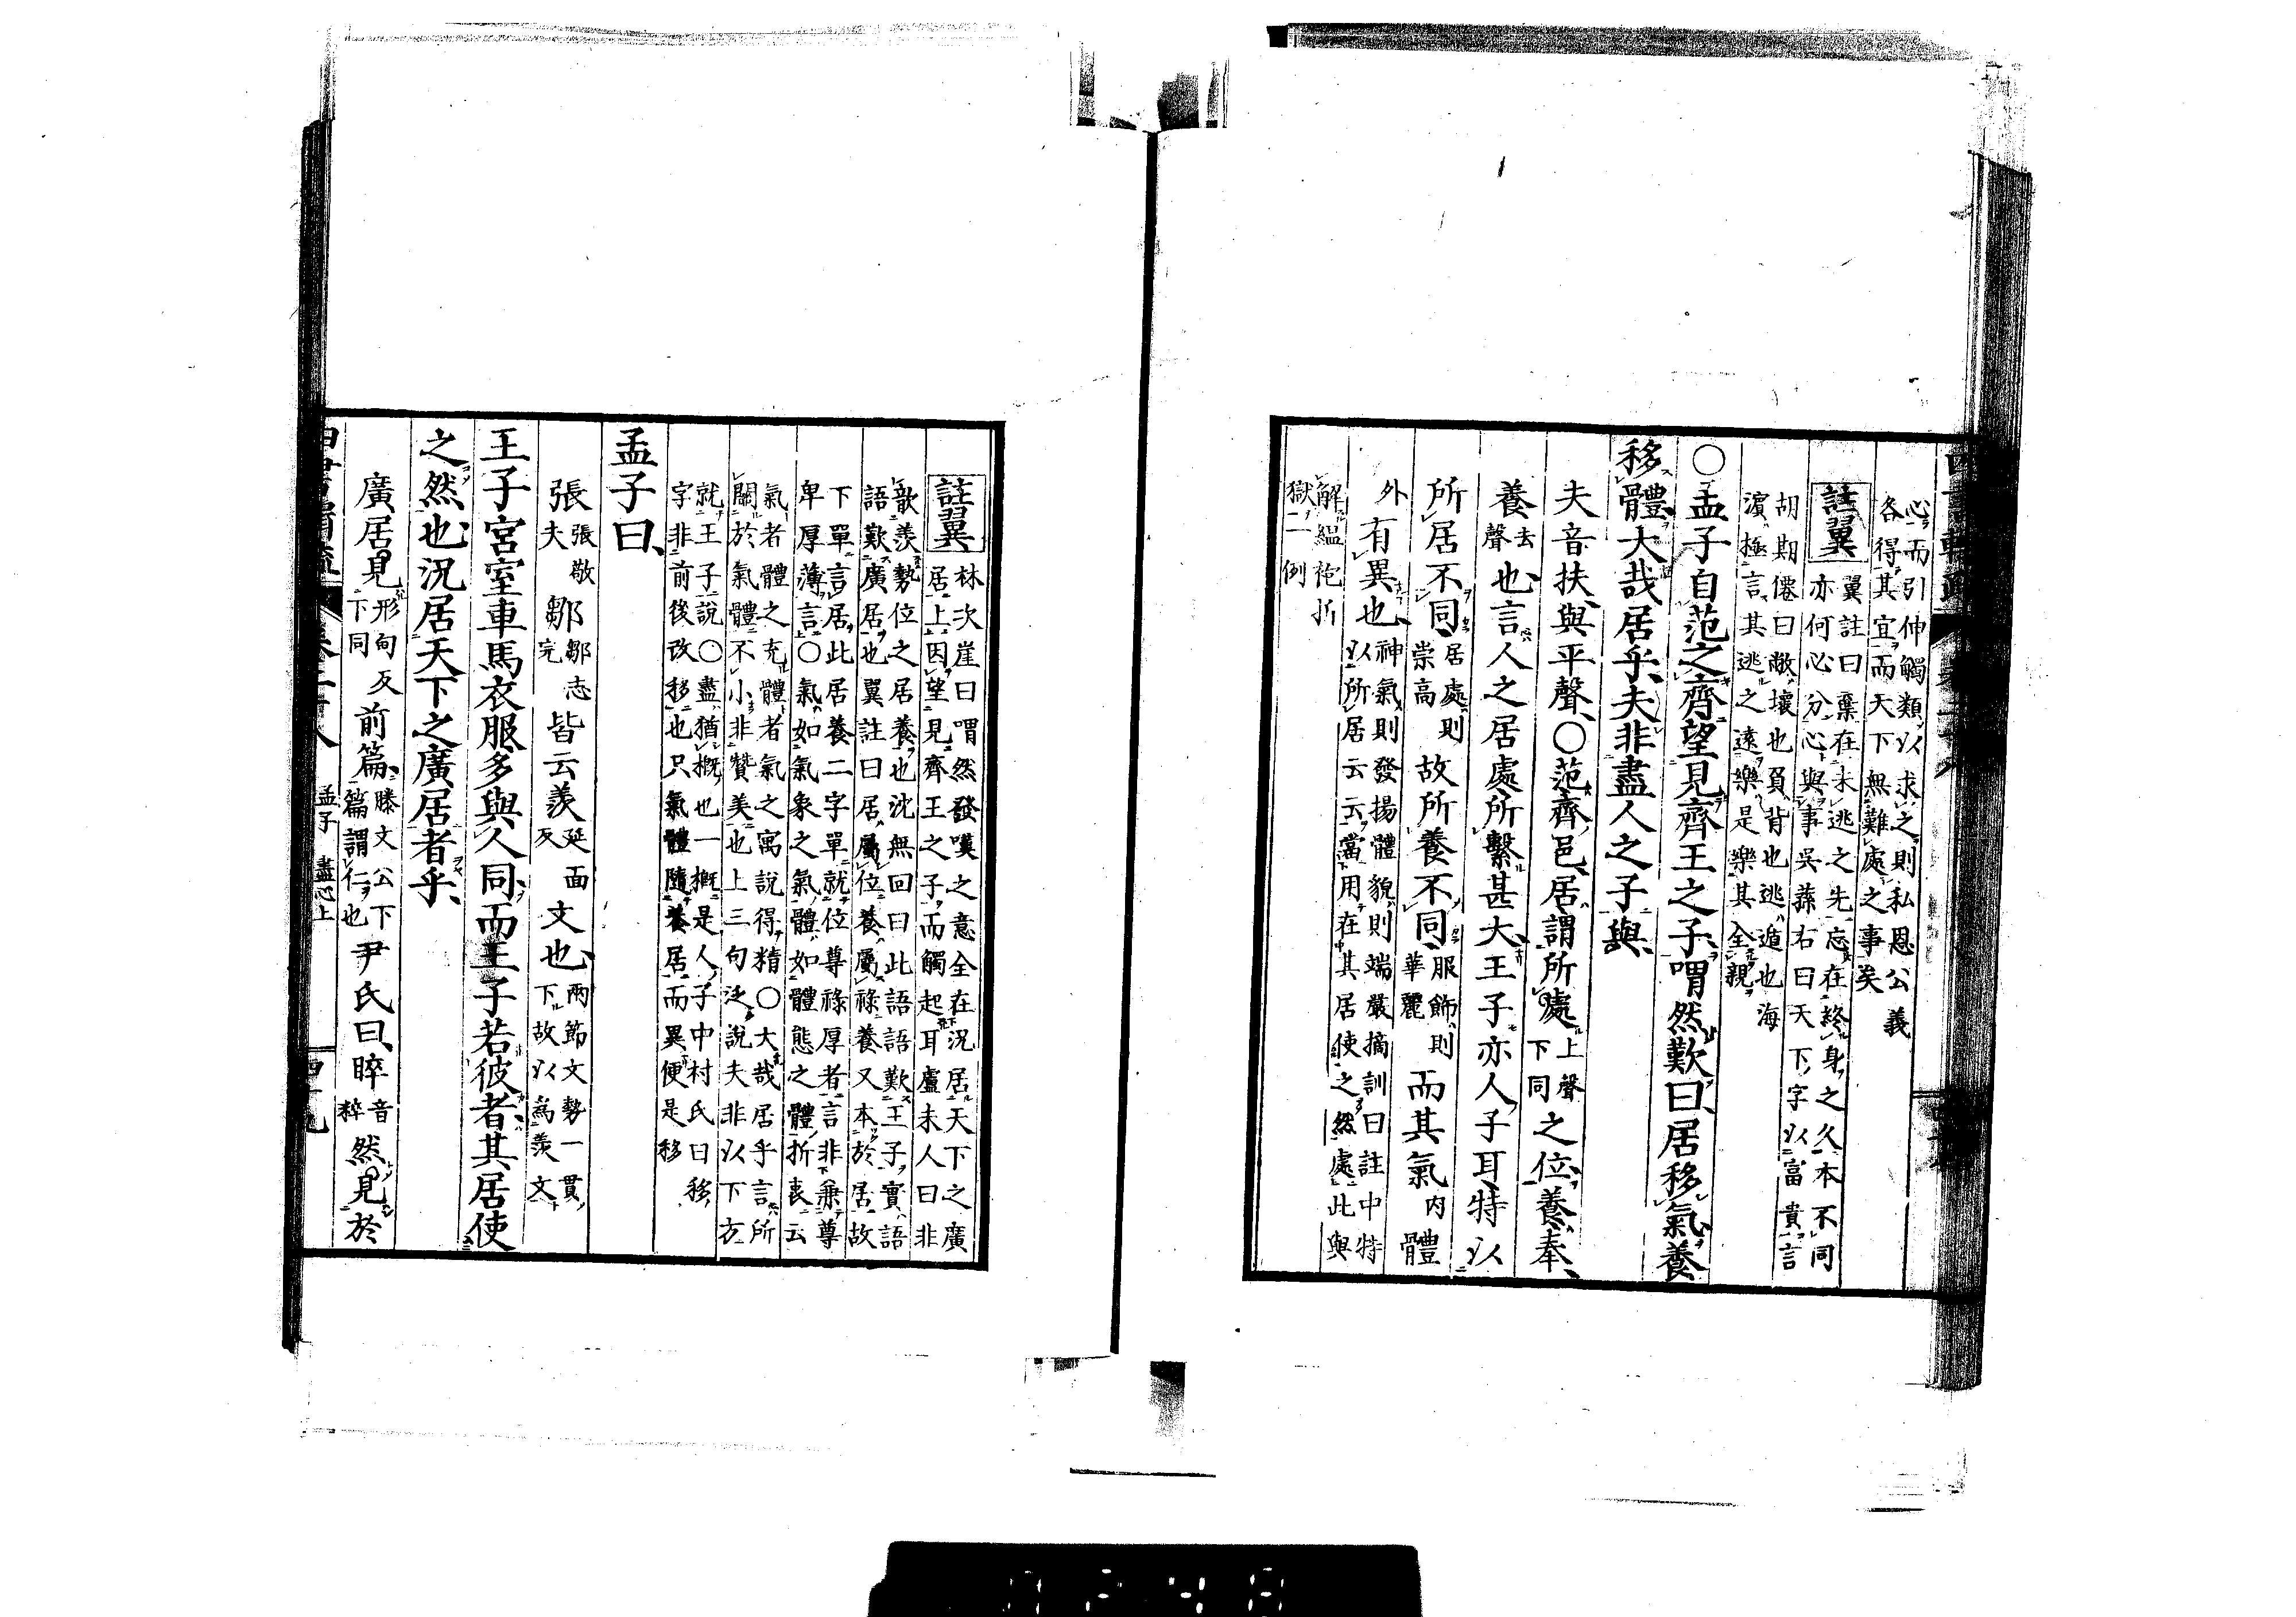 心而引伸觸類以求之則私恩公義
各得其宜而天下無難處之事矣
註翼
翼註曰棄在未逃之先忘在終身之久本不同
亦何必分心與事吳蓀右曰天下字以富貴言
胡期僊曰敝壞也負背也逃遁也海
濵極言其逃之遠樂是樂其全親
○孟子自范之齊望見齊王之子喟然歎曰居移氣養
移體大哉居乎夫非盡人之子與
夫音扶與平聲○范齊邑居謂所處上聲下同之位養奉
養去聲也言人之居處所繫甚大王子亦人子耳特以
所居不同居處則崇高故所養不同服飾則華麗而其氣內體
外有異也神氣則發揚體貌則端嚴摘訓曰註中特
以所居云云當用在其居使之然處此與
解縕袍折
獄二例
註翼
林次崖曰喟然發嘆之意全在況居天下之廣
居上因望見齊王之子而觸起耳盧未人曰非
歆羨勢位之居養也沈無回曰此語語歎王子實語
語歎廣居也翼註曰居屬位養屬祿養又本於居故
下單言居此居養二字單就位尊祿厚者言非兼尊
卑厚薄言○氣如氣象之氣體如體態之體折衷云
氣者體之充體者氣之寓說得精○大哉居乎言所
關於氣體不小非贊美也上三句泛說夫非以下方
就王子說○盡猶概也一概是人子中村氏曰移
字非前後改移也只氣體隨養居而異便是移
孟子曰
張張敬夫鄒鄒志完皆云羨延面反文也兩節文勢一貫下故以爲羨文
王子宮室車馬衣服多與人同而王子若彼者其居使
之然也況居天下之廣居者乎
廣居見形甸反下同前篇滕文公下篇謂仁也尹氏曰睟音粹然見於
孟子 盡心上